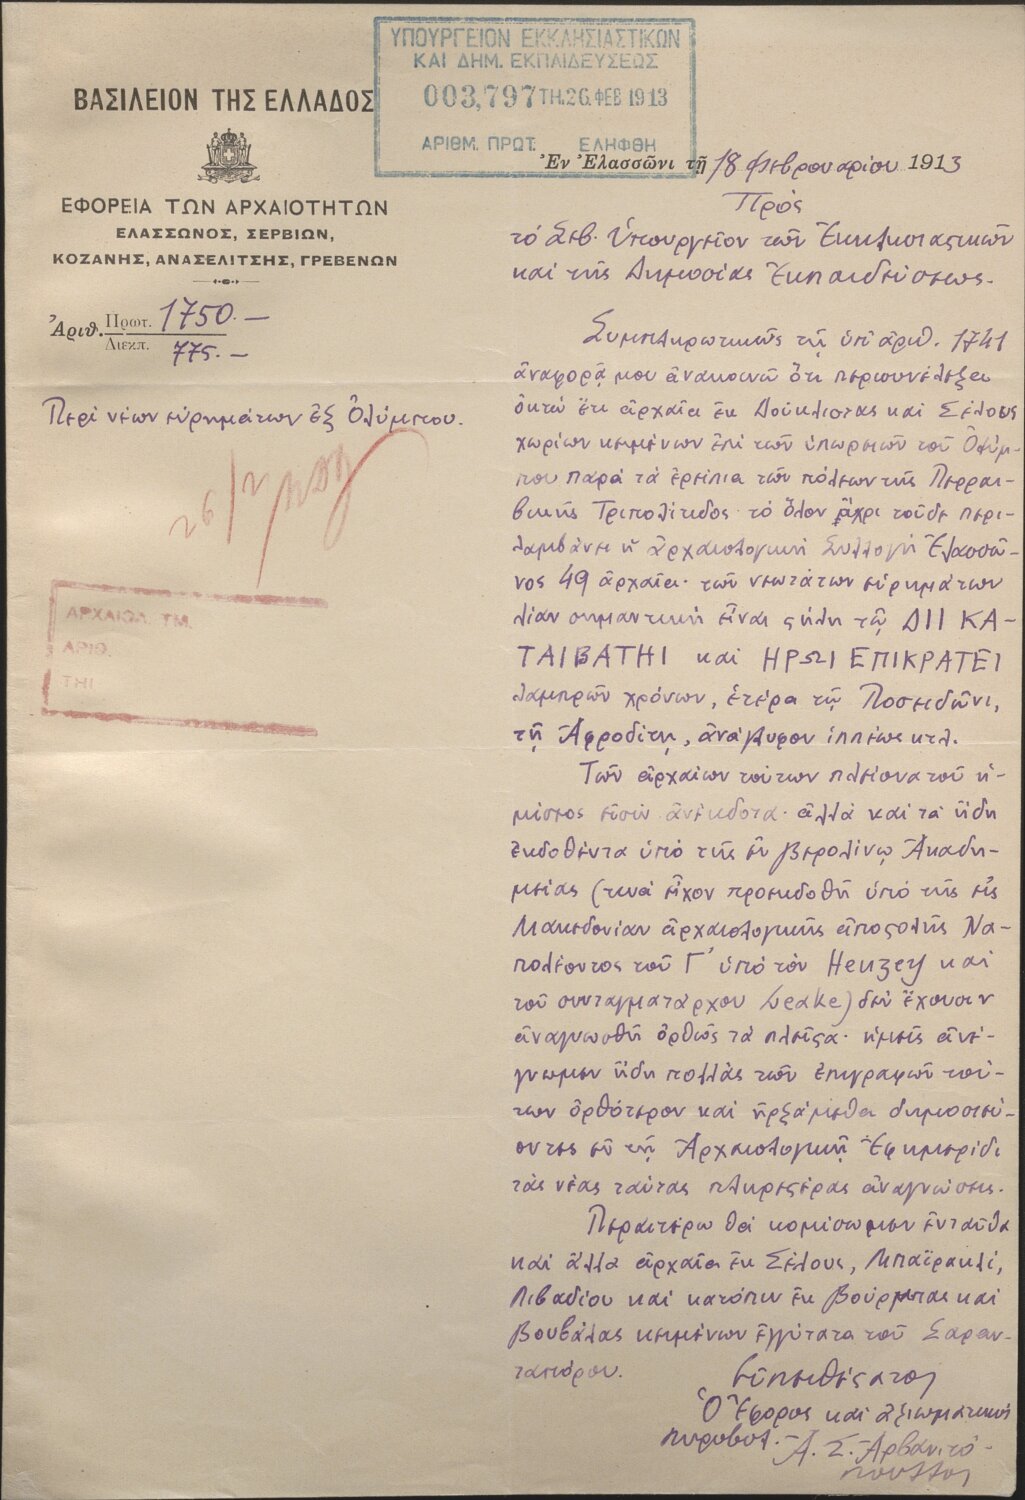 ΥΠΟΥΡΓΕΙΟΝ ΕΚΚΛΗΣΙΑΣΤΙΚΩΝ
ΚΑΙ ΔΗΜ. ΕΚΠΑΙΔΕΥΣΕΩΣ
003,797 ΤΗ. 26 ΦΕΒ 1913
ΑΡΙΘΜ. ΠΡΩΤ. ΕΛΗΦΘΗ
ΒΑΣΙΛΕΙΟΝ ΤΗΣ ΕΛΛΑΔΟΣ
ΕΦΟΡΕΙΑ ΤΩΝ ΑΡΧΑΙΟΤΗΤΩΝ
ΕΛΑΣΣΩΝΟΣ, ΣΕΡΒΙΩΝ,
ΚΟΖΑΝΗΣ, ΑΝΑΣΕΛΙΤΣΗΣ, ΓΡΕΒΕΝΩΝ
Ἀριθ. Πρωτ. 1750.—
Διεκπ. 775.—
Περὶ νέων εὑρημάτων ἐξ Ὀλύμπου.
26/2
ΑΡΧΑΙΟΛ. ΤΜ.
ΑΡΙΘ.
ΤΗΙ
Ἐν Ἐλασσῶνι τῇ 18 Φεβρουαρίου 1913
Πρὸς
τὸ Σεβ. Ὑπουργεῖον τῶν Ἐκκλησιαστικῶν
καὶ τῆς Δημοσίας Ἐκπαιδεύσεως.
Συμπληρωτικῶς τῇ ὑπ' ἀριθ. 1741
ἀναφορᾷ μου ἀνακοινῶ ὅτι περισυνέλεξα
ὀκτὼ ἔτι ἀρχαῖα ἐκ Δούκλιστας καὶ Σέλους
χωρίων κειμένων ἐπὶ τῶν ὑπωρειῶν τοῦ Ὀλύμ-
που παρὰ τὰ ἐρείπια τῶν πόλεων τῆς Περραι-
βικῆς Τριπολίτιδος τὸ ὅλον ἄχρι τοῦδε περι-
λαμβάνει ἡ ἀρχαιολογικὴ Συλλογὴ Ἐλασσῶ-
νος 49 ἀρχαῖα· τῶν νεωτάτων εὑρημάτων
λίαν σημαντικὴ εἶναι ςήλη τῷ ΔΙΙ ΚΑ-
ΤΑΙΒΑΤΗΙ καὶ ΗΡΩΙ ΕΠΙΚΡΑΤΕΙ
λαμπρῶν χρόνων, ἑτέρα τῷ Ποσειδῶνι,
τῇ Ἀφροδίτῃ, ἀνάγλυφον ἱππέως κτλ.
Τῶν ἀρχαίων τούτων πλείονα τοῦ ἡ-
μίσεος εἰσὶν ἀνέκδοτα· ἀλλὰ καὶ τὰ ἤδη
ἐκδοθέντα ὑπὸ τῆς ἐν Βερολίνῳ Ἀκαδη-
μείας (τινὰ εἶχον προεκδοθῆ ὑπὸ τῆς εἰς
Μακεδονίαν ἀρχαιολογικῆς ἀποςολῆς Να-
πολέοντος τοῦ Γ' ὑπὸ τὸν Heuzey καὶ
τοῦ συνταγματάρχου Leake) δὲν ἔχουσιν
ἀναγνωσθῆ ὀρθῶς τὰ πλεῖςα· ἡμεῖς ἀνέ-
γνωμεν ἤδη πολλὰς τῶν ἐπιγραφῶν τού-
των ὀρθότερον καὶ ἠρξάμεθα δημοσιεύ-
οντες ἐν τῇ Ἀρχαιολογικῇ Ἐφημερίδι
τὰς νέας ταύτας πληρεςέρας ἀναγνώσεις.
Περαιτέρω θὰ κομίσωμεν ἐνταῦθα
καὶ ἄλλα ἀρχαῖα ἐκ Σέλους, Μπαϊρακλί,
Λιβαδίου καὶ κατόπιν ἐκ Βούρμπας καὶ
Βουβάλας κειμένων ἐγγύτατα τοῦ Σαραν-
ταπόρου.
Εὐπειθέςατος
Ὁ Ἔφορος καὶ ἀξιωματικὸς
πυροβολ. Ἀ. Σ. Ἀρβανιτό-
πουλλος